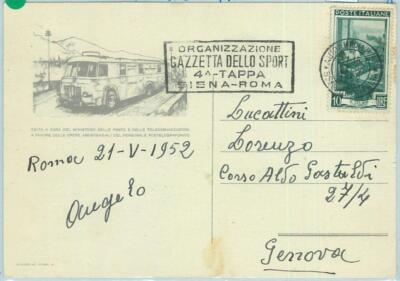 ORGANIZZAZIONE
GAZZETTA DELLO SPORT
4^-TAPPA
SIENA-ROMA
POSTE ITALIANE
10
EDITA A CURA DEL MINISTERO DELLE POSTE E DELLE TELECOMUNICAZIONI
A FAVORE DELLE OPERE ASSISTENZIALI DEL PERSONALE POSTELEGRAFONICO
Roma 21-V-1952
Angelo
Lucattini
Lorenzo
Corso Aldo Gastaldi
27/4
Genova